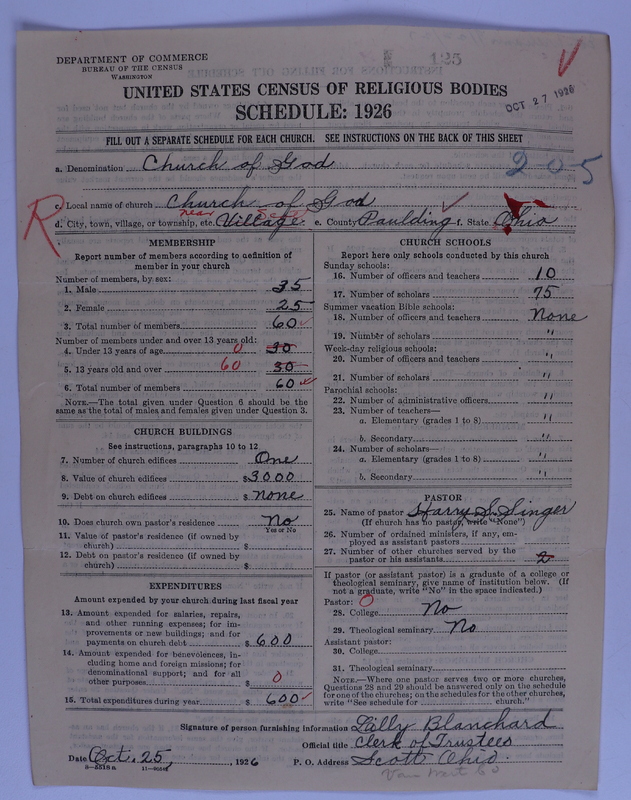 125
DEPARTMENT OF COMMERCE
BUREAU OF THE CENSUS
WASHINGTON
UNITED STATES CENSUS OF RELIGIOUS BODIES
OCT 27 1926
SCHEDULE: 1926
FILL OUT A SEPARATE SCHEDULE FOR EACH CHURCH. SEE INSTRUCTIONS ON THE BACK OF THIS SHEET
a. Denomination Church of God
205
c. Local name of church Church of God
R
near
d. City, town, village, or township, etc. Village. e. County Paulding f. State Ohio
MEMBERSHIP
Report number of members according to definition of
member in your church
Number of members, by sex:
1. Male 35
2. Female 25
3. Total number of members 60
Number of members under and over 13 years old:
4. Under 13 years of age 0 30
5. 13 years old and over 60 30
6. Total number of members 60
NOTE.—The total given under Question 6 should be
the same as the total of males and females given under Question 3.
CHURCH BUILDINGS
See instructions, paragraphs 10 to 12
7. Number of church edifices One
8. Value of church edifices $3000
9. Debt on church edifices $ none
10. Does church own pastor's residence No
Yes or No
11. Value of pastor's residence (if owned by
church) $
12. Debt on pastor's residence (if owned by
church) $
EXPENDITURES
Amount expended by your church during last fiscal year
13. Amount expended for salaries, repairs,
and other running expenses; for im-
provements or new buildings; and for
payments on church debt $ 600
14. Amount expended for benevolences, in-
cluding home and foreign missions; for
denominational support; and for all
other purposes $ 0
15. Total expenditures during year $ 600
CHURCH SCHOOLS
Report here only schools conducted by this church
Sunday schools:
16. Number of officers and teachers 10
17. Number of scholars 75
Summer vacation Bible schools:
18. Number of officers and teachers None
19. Number of scholars "
Week-day religious schools:
20. Number of officers and teachers "
21. Number of scholars "
Parochial schools:
22. Number of administrative officers "
23. Number of teachers—
a. Elementary (grades 1 to 8) "
b. Secondary "
24. Number of scholars—
a. Elementary (grades 1 to 8) "
b. Secondary "
PASTOR
25. Name of pastor Harry S. Singer
(If church has no pastor, write "None")
26. Number of ordained ministers, if any, em-
ployed as assistant pastors
27. Number of other churches served by the
pastor or his assistants 2
If pastor (or assistant pastor) is a graduate of a college or
theological seminary, give name of institution below. (If
not a graduate, write "No" in the space indicated.)
Pastor: 0
28. College No
29. Theological seminary No
Assistant pastor:
30. College
31. Theological seminary
NOTE.—Where one pastor serves two or more churches,
Questions 28 and 29 should be answered only on the schedule
for one of the churches; on the schedules for the other churches,
write "See schedule for church."
Signature of person furnishing information Lilly Blanchard
Official title Clerk of Trustees
Date Oct. 25, , 1926 P. O. Address Scott Ohio.
Van Wert Co